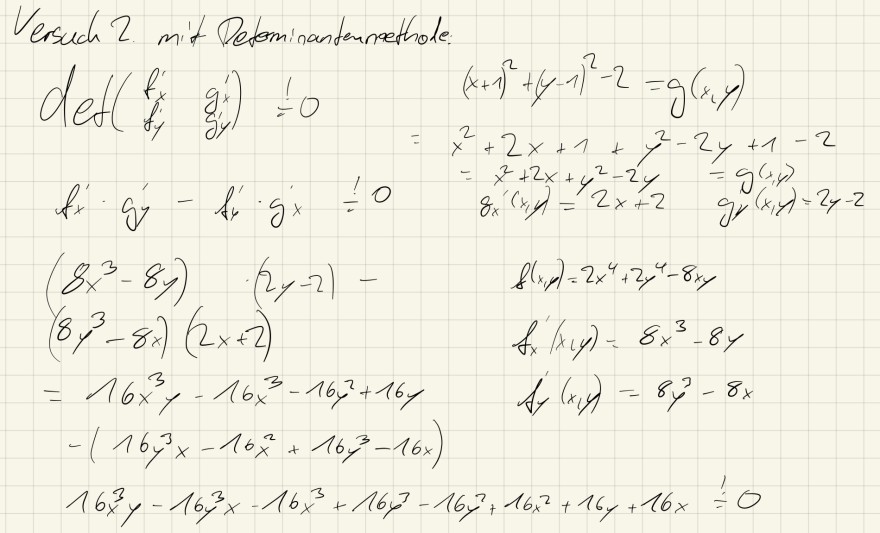 Versuch 2. mit Determinantenmethode:
det( f'x g'x
f'y g'y ) != 0
(x+1)² + (y-1)² - 2 = g(x,y)
= x² + 2x + 1 + y² - 2y + 1 - 2
= x² + 2x + y² - 2y = g(x,y)
g'x(x,y) = 2x+2 g'y(x,y) = 2y-2
f'x · g'y - f'y · g'x != 0
(8x³ - 8y) · (2y-2) -
(8y³ - 8x) (2x+2)
f(x,y) = 2x⁴ + 2y⁴ - 8xy
f'x(x,y) = 8x³ - 8y
f'y(x,y) = 8y³ - 8x
= 16x³y - 16x³ - 16y² + 16y
- ( 16y³x - 16x² + 16y³ - 16x)
16x³y - 16y³x - 16x³ + 16y³ - 16y² + 16x² + 16y + 16x != 0